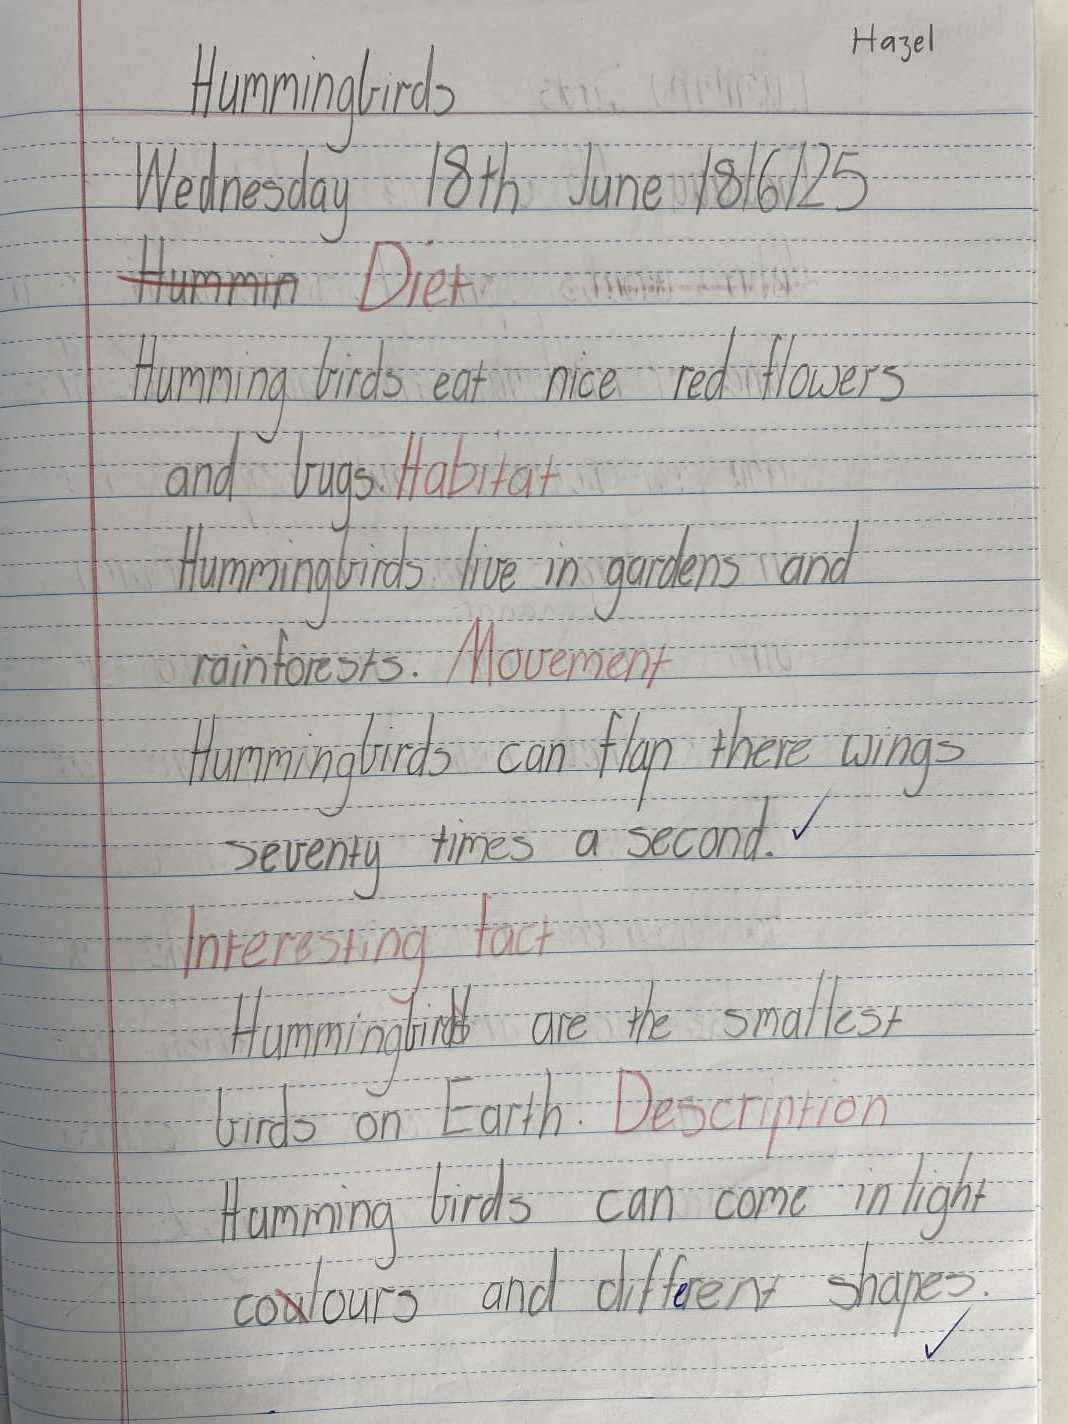 Hazel
Hummingbirds
Wednesday 18th June 18/6/25
Hummin Diet
Humming birds eat nice red flowers
and bugs. Habitat
Hummingbirds live in gardens and
rainforests. Movement
Hummingbirds can flap there wings
seventy times a second.
Interesting fact
Hummingbirds are the smallest
birds on Earth. Description
Humming birds can come in light
coulours and different shapes.